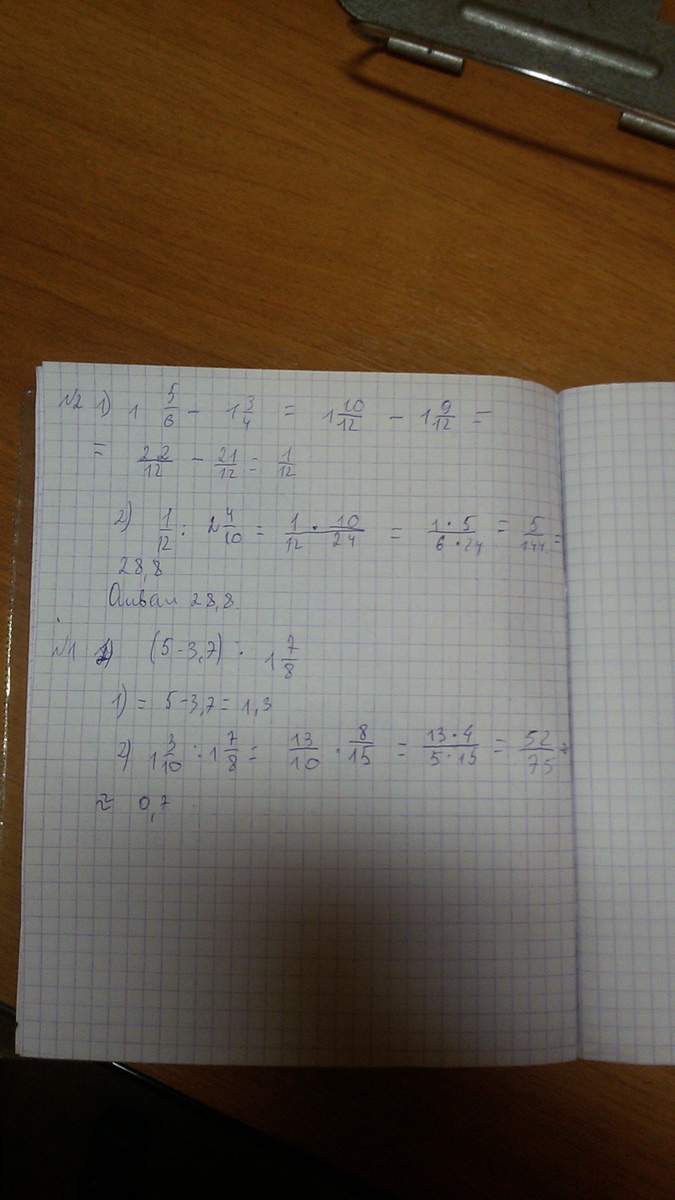 №2 1) 1 5/6 - 1 3/4 = 1 10/12 - 1 9/12 =
= 22/12 - 21/12 = 1/12
2) 1/12 : 2 4/10 = 1/12 · 10/24 = 1·5/6·24 = 5/144 =
28,8
28,8
№1 (5-3,7) : 1 7/8
1) = 5-3,7 = 1,3
2) 1 3/10 : 1 7/8 = 13/10 · 8/15 = 13·4/5·15 = 52/75 ≈
≈ 0,7